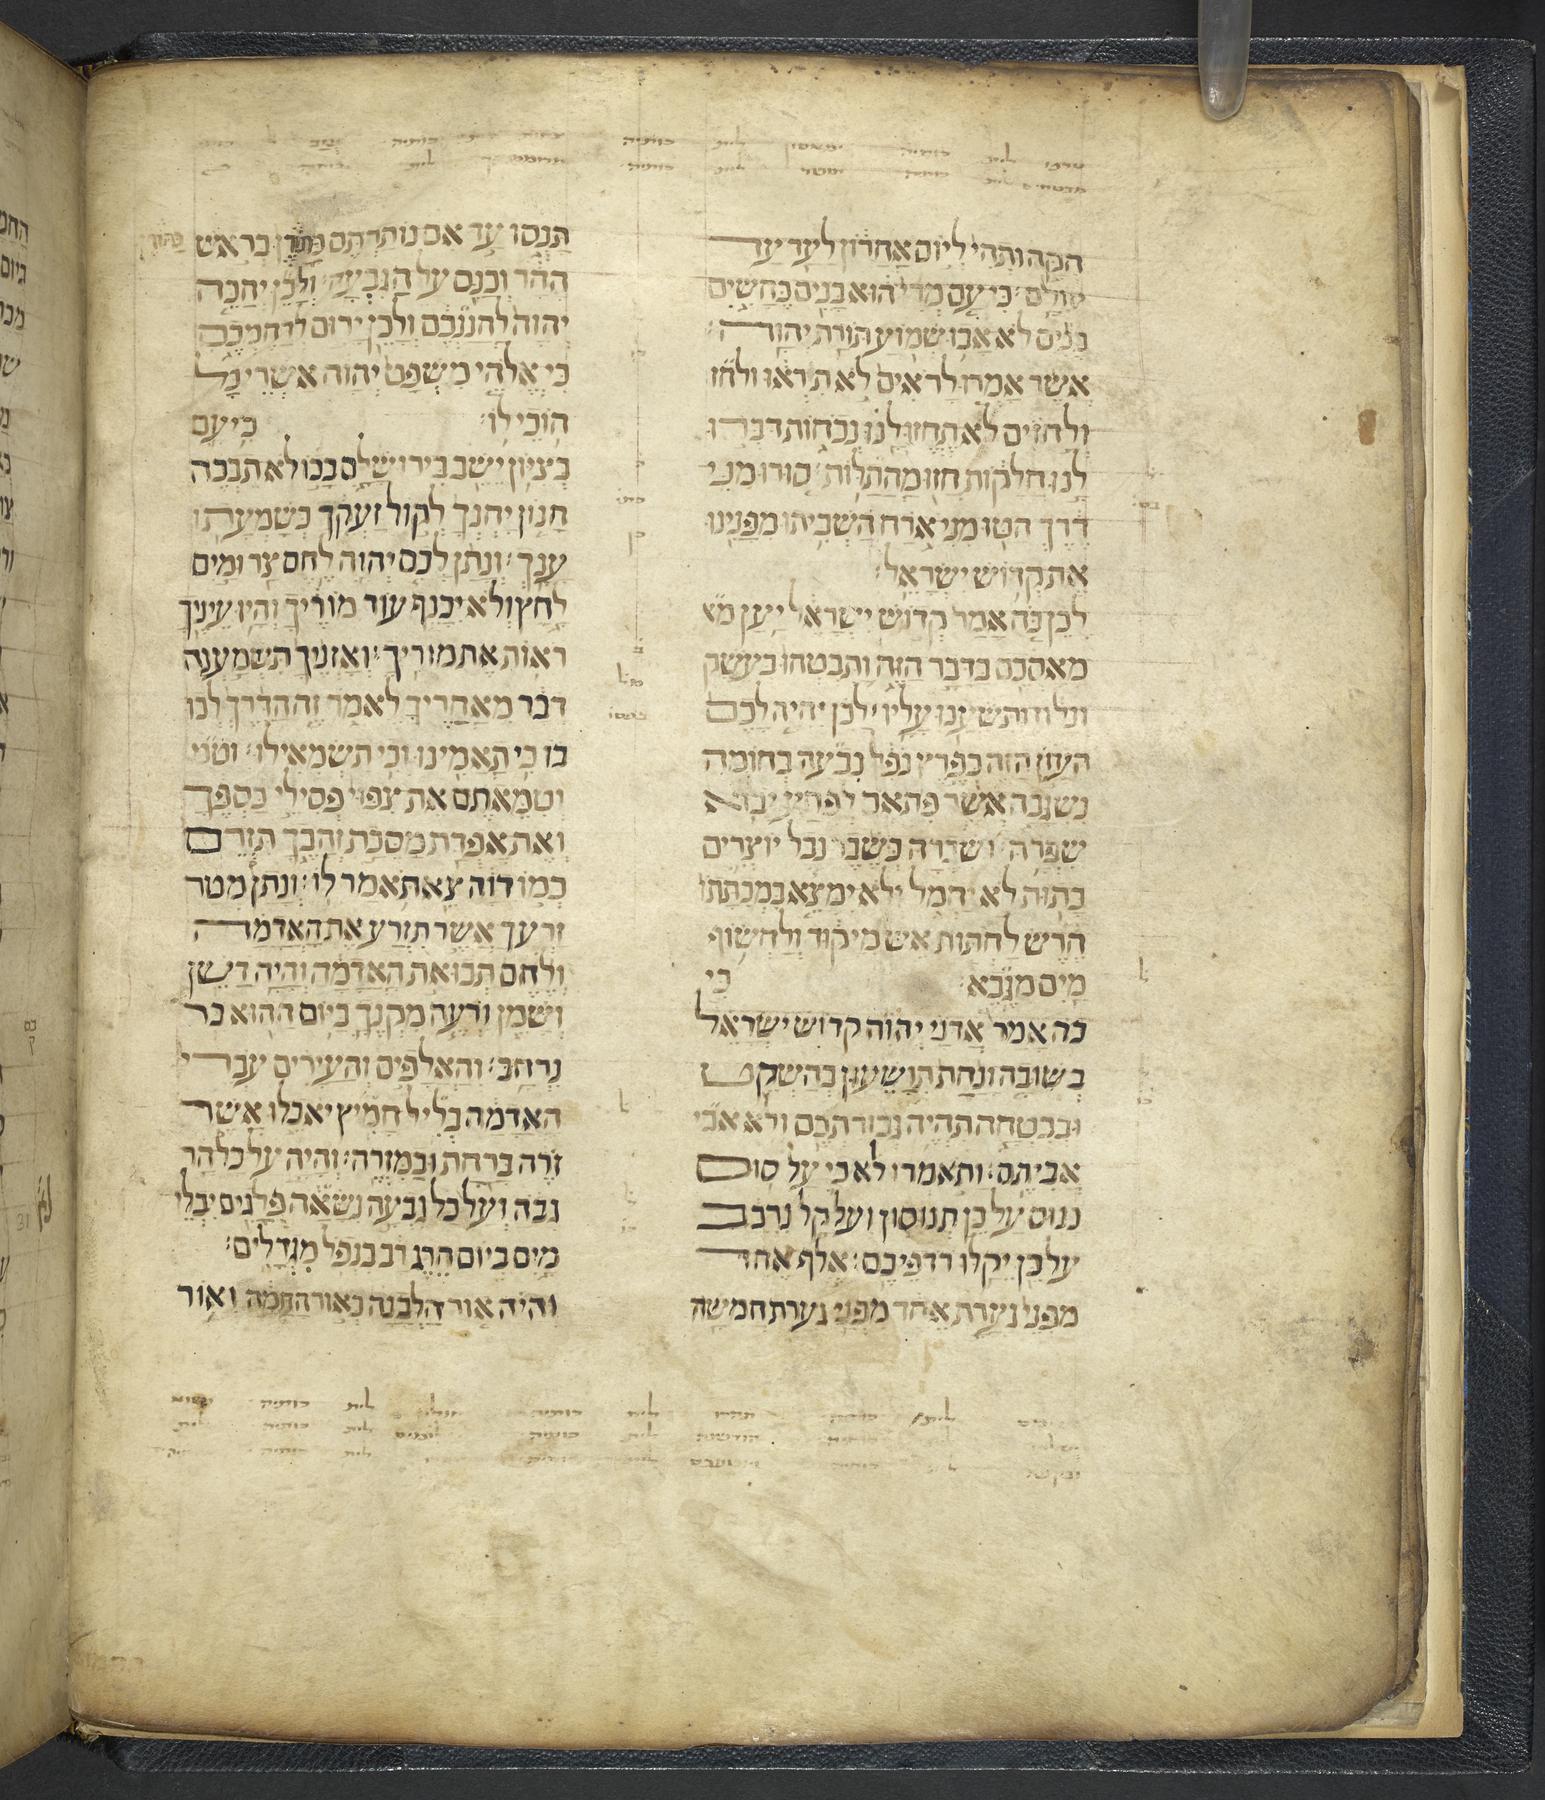 חקה ותהי ליום אחרון לעד עד
עולם׃ כי עם מרי הוא בנים כחשים
בנים לא אבו שמוע תורת יהוה׃
אשר אמרו לראים לא תראו ולחז
ולחזים לא תחזו לנו נכחות דברו
לנו חלקות חזו מהתלות׃ סורו מני
דרך הטו מני ארח השביתו מפנינו
את קדוש ישראל׃
לכן כה אמר קדוש ישראל יען מא
מאסכם בדבר הזה ותבטחו בעשק
ונלוז ותשענו עליו׃ לכן יהיה לכם
העון הזה כפרץ נפל נבעה בחומה
נשגבה אשר פתאם לפתע יבוא
שברה׃ ושברה כשבר נבל יוצרים
כתות לא יחמל ולא ימצא במכתתו
חרש לחתות אש מיקוד ולחשוף
מים מגבא׃ כי
כה אמר אדני יהוה קדוש ישראל
בשובה ונחת תושעון בהשקט
ובבטחה תהיה גבורתכם ולא אבי
אביתם׃ ותאמרו לא כי על סוס
ננוס על כן תנוסון ועל קל נרכב
על כן יקלו רדפיכם׃ אלף אחד
מפני גערת אחד מפני גערת חמשה
תנסו עד אם נותרתם כתרן בראש
ההר וכנס על הגבעה׃ ולכן יחכה
יהוה לחננכם ולכן ירום לרחמכם
כי אלהי משפט יהוה אשרי כל
חוכי לו׃ כי עם
בציון ישב בירושלם בכו לא תבכה
חנון יחנך לקול זעקך כשמעתו
ענך׃ ונתן לכם יהוה לחם צר ומים
לחץ ולא יכנף עוד מוריך והיו עיניך
ראות את מוריך׃ ואזניך תשמענה
דבר מאחריך לאמר זה הדרך לכו
בו כי תאמינו וכי תשמאילו׃ וטמ
וטמאתם את צפוי פסילי כספך
ואת אפדת מסכת זהבך תזרם
כמו דוה צא תאמר לו׃ ונתן מטר
זרעך אשר תזרע את האדמה
ולחם תבואת האדמה והיה דשן
ושמן ירעה מקניך ביום ההוא כר
נרחב׃ והאלפים והעירים עבדי
האדמה בליל חמיץ יאכלו אשר
זרה ברחת ובמזרה׃ והיה על כל הר
גבה ועל כל גבעה נשאה פלגים יבלי
מים ביום הרג רב בנפל מגדלים׃
והיה אור הלבנה כאור החמה ואור